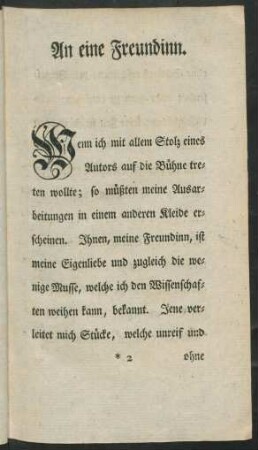 An eine Freundinn.
Wenn ich mit allem Stolz eines
Autors auf die Bühne tre-
ten wollte; so müßten meine Ausar-
beitungen in einem anderen Kleide er-
scheinen. Ihnen, meine Freundinn, ist
meine Eigenliebe und zugleich die we-
nige Musse, welche ich den Wissenschaf-
ten weihen kann, bekannt. Jene ver-
leitet mich Stücke, welche unreif und
* 2 ohne